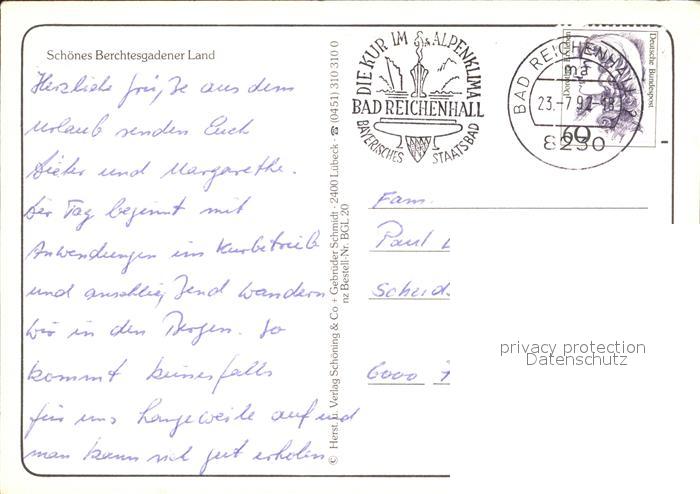 Schönes Berchtesgadener Land
Herzliche Grüße aus dem
Urlaub senden Euch
Dieter und Margarethe.
Der Tag beginnt mit
Anwendungen im Kurbetrieb
und anschließend wandern
wir in den Bergen. So
kommt keinesfalls
für uns Langeweile auf und
man kann sich gut erholen
© Herst. u. Verlag Schöning & Co + Gebrüder Schmidt · 2400 Lübeck · ☎ (0451) 310 310 0
nz Bestell-Nr. BGL 20
DIE KUR IM ALPENKLIMA
BAD REICHENHALL
BAYERISCHES STAATSBAD
BAD REICHENHALL
ma
23.-7.92-18
8230
60
Deutsche Bundespost
Fam.
Paul
Scheid
6000
privacy protection
Datenschutz